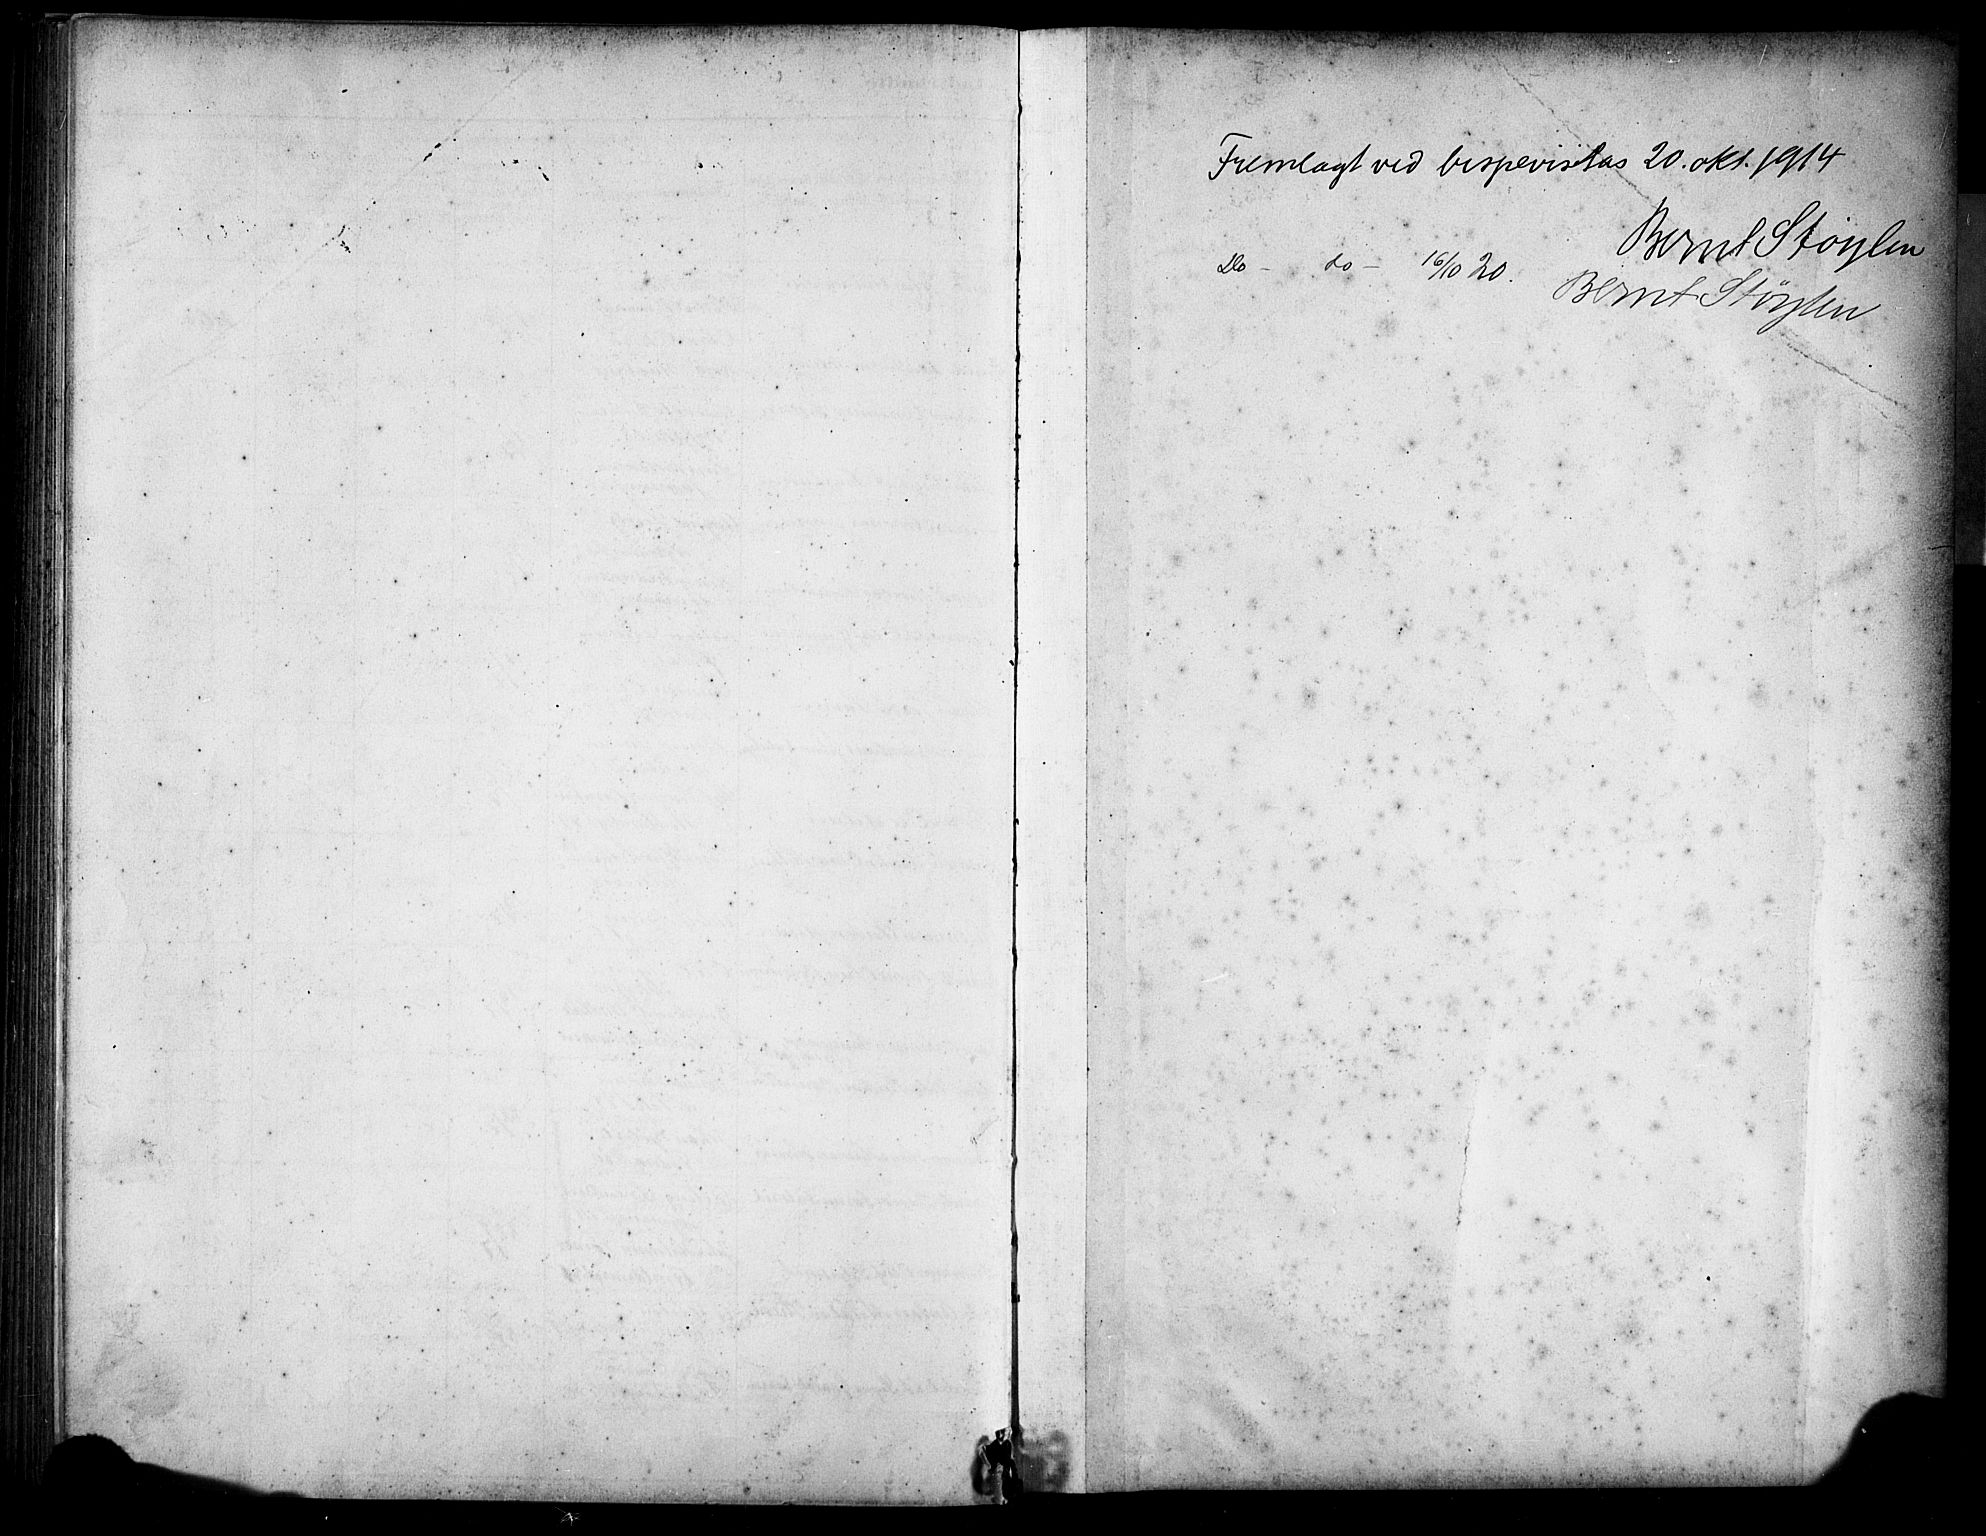 Fremlagt ved bispevisitas 20. okt. 1914
Bernt Støylen
Do – do – 16/10 20.
Bernt Støylen